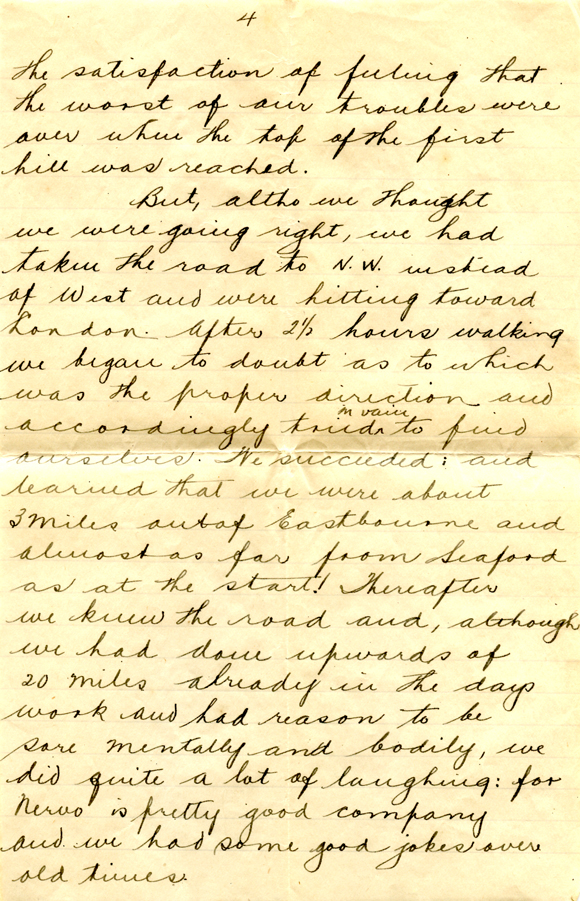 4
the satisfaction of feeling that
the worst of our troubles were
over when the top of the first
hill was reached.
But, altho we thought
we were going right, we had
taken the road to N.W. instead
of West and were hitting toward
London. After 2½ hours walking
we began to doubt as to which
was the proper direction and
in vain
accordingly tried to find
ourselves. We succeeded: and
learned that we were about
3 miles out of Eastbourne and
almost as far from Seaford
as at the start! Thereafter
we knew the road and, although
we had done upwards of
20 miles already in the days
work and had reason to be
sore mentally and bodily, we
did quite a lot of laughing: for
Nervo is pretty good company
and we had some good jokes over
old times.